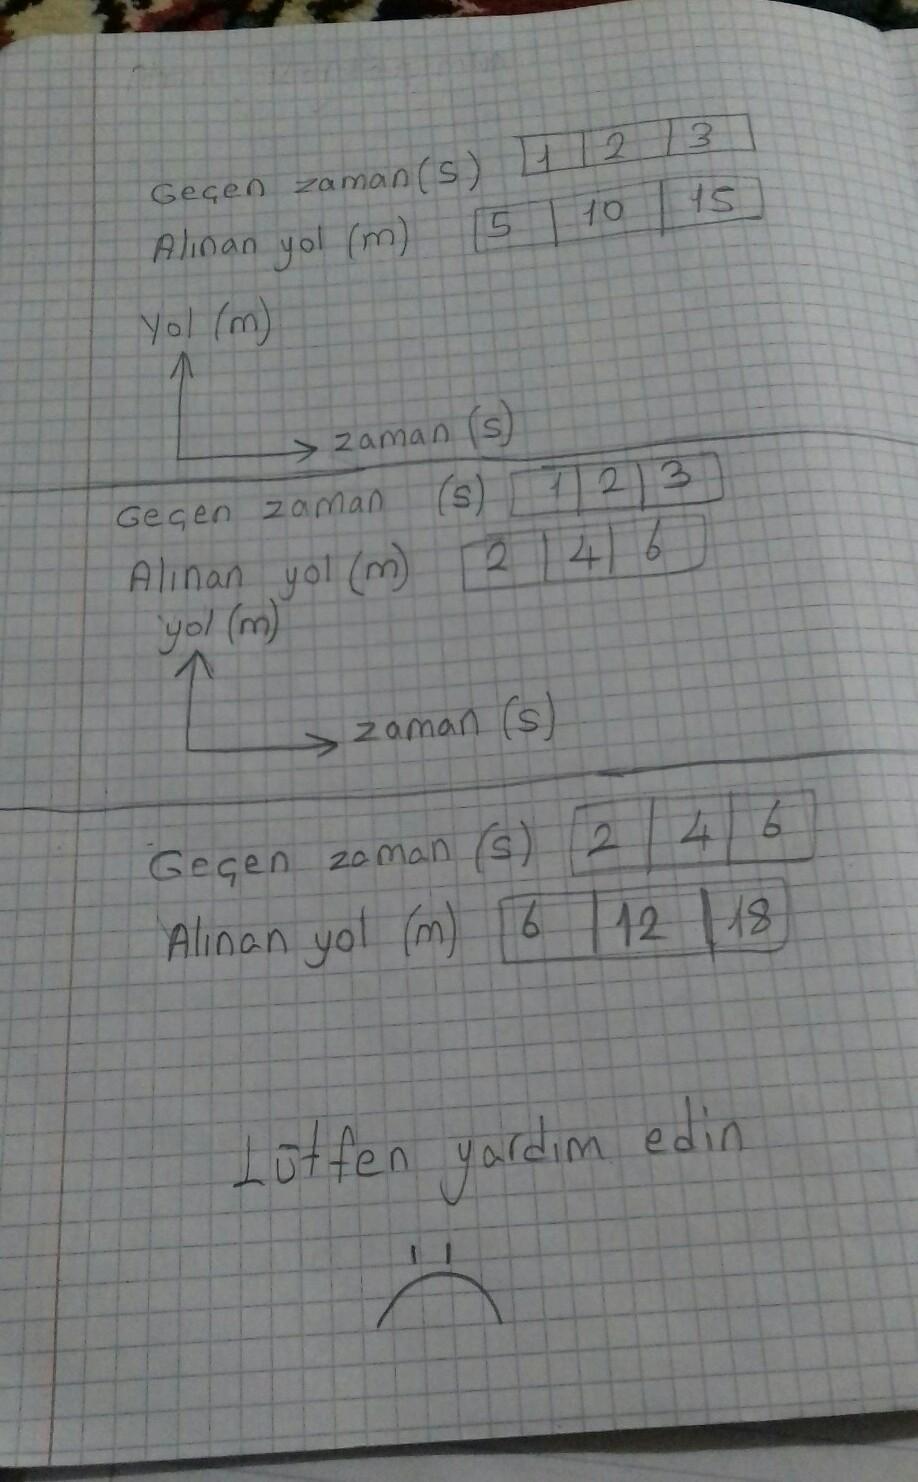 Geçen zaman (s) 1 2 3
Alınan yol (m) 5 10 15
Yol (m)
zaman (s)
Geçen zaman (s) 1 2 3
Alınan yol (m) 2 4 6
yol (m)
zaman (s)
Geçen zaman (s) 2 4 6
Alınan yol (m) 6 12 18
Lütfen yardım edin